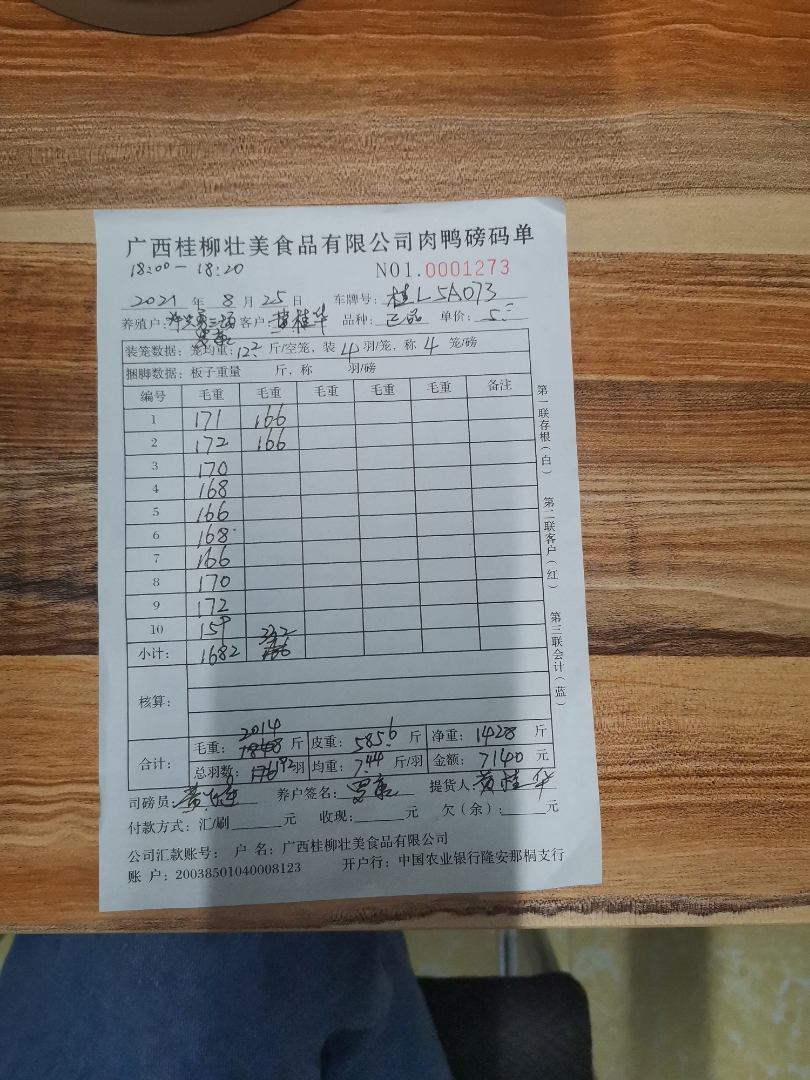 广西桂柳壮美食品有限公司肉鸭磅码单
18:00-18:20 NO1.0001273
2021年8月25日 车牌号:桂L5A073
养殖户: 三场 客户:黄桂华 品种:正品 单价:5.
装笼数据:笼均重:12.2斤/空笼,装4羽/笼,称4笼/磅
捆脚数据:板子重量 斤,称 羽/磅
编号 毛重 毛重 毛重 毛重 毛重 备注
1 171 166
2 172 166
3 170
4 168
5 166
6 168
7 166
8 170
9 172
10 159
小计: 1682 332
核算:
合计: 毛重:2014斤 皮重:585.6斤 净重:1428斤
总羽数:192羽 均重:7.44斤/羽 金额:7140元
司磅员: 养户签名: 提货人:黄桂华
付款方式:汇/刷 元 收现: 元 欠(余): 元
公司汇款账号: 户 名:广西桂柳壮美食品有限公司
账 户:20038501040008123 开户行:中国农业银行隆安那桐支行
第一联存根(白)
第二联客户(红)
第三联会计(蓝)